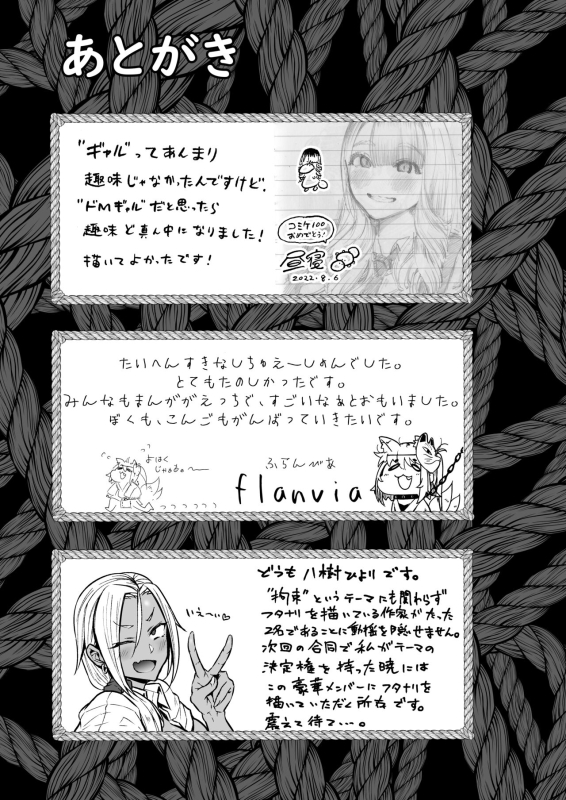 あとがき
"ギャル"ってあんまり
趣味じゃなかったんですけど、
"ドMギャル"だと思ったら
趣味ど真ん中になりました!
描いてよかったです!
コミケ100
おめでとう!
昼寝
2022.8.6
たいへんすきなしちゅえーしょんでした。
とてもたのしかったです。
みんなもまんががえっちで、すごいなぁとおもいました。
ぼくも、こんごもがんばっていきたいです。
よはく
じゃぁぁぁ〜
ふらんびあ
flanvia
いえ〜い♡
どうも八樹ひよりです。
"拘束"というテーマにも関わらず
フタナリを描いている作家がたった
2名であることに動揺を隠せません。
次回の合同で私がテーマの
決定権を持った暁には
この豪華メンバーにフタナリを
描いていただく所存です。
震えて待て…。